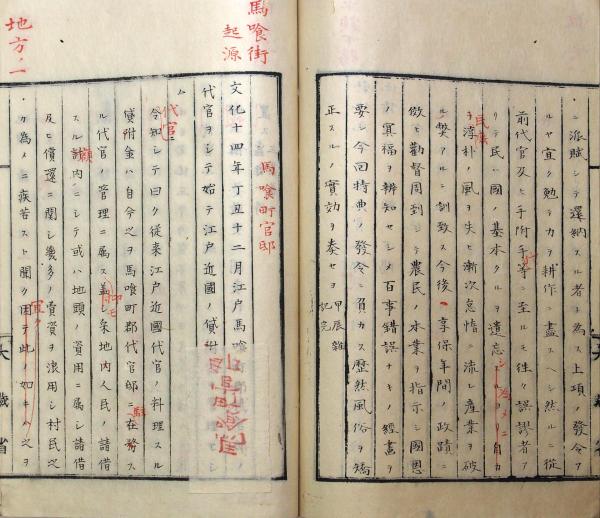 ニ派賦シテ還納スル者ト為ス上項ノ發令ア
ルヤ宜ク勉テカヲ耕作ニ盡スヘシ然ルニ從
前代官及ヒ手附手等ニ至ルモ往々誤謬者ア
リテ民ハ國ノ基本タルヲ遺忘シ 自カ
ラ淳朴ノ風ヲ失ヒ漸次怠惰ニ流レ産業ヲ破
ルノ弊アルニ訓致ス今後ハ享保年間ノ政蹟ニ
倣ヒ勸督周到シテ農民ノ本業ヲ指示シ國恩
ノ冥福ヲ辨知セシメ百事錯誤ナキノ經畫ヲ
要シ今回特典ノ發令ニ負カス歴然風俗ヲ矯
正スルノ實効ヲ奏セヨ 甲辰雜記完
馬喰街
起源
馬喰町官邸
文化十四年丁丑十二月江戸馬喰
代官ヲシテ始テ江戸近國ノ貸附
ム
代官ニ
令知シテ曰ク從来江戸近國代官ノ料理スル
貸附金ハ自今之ヲ馬喰町郡代官邸ニ在務ス
ル代官ノ管理ニ属ス蓋シ条地内人民ノ請借
スル 内ニシテ或ハ地頭ノ資用ニ属シ請借
及ヒ償還ニ関シ幾多ノ費資ヲ浪用シ村民之
ク為メニ疾苦スト聞ク因テ此ノ如キハ之ヲ
地方ノ一
大蔵省